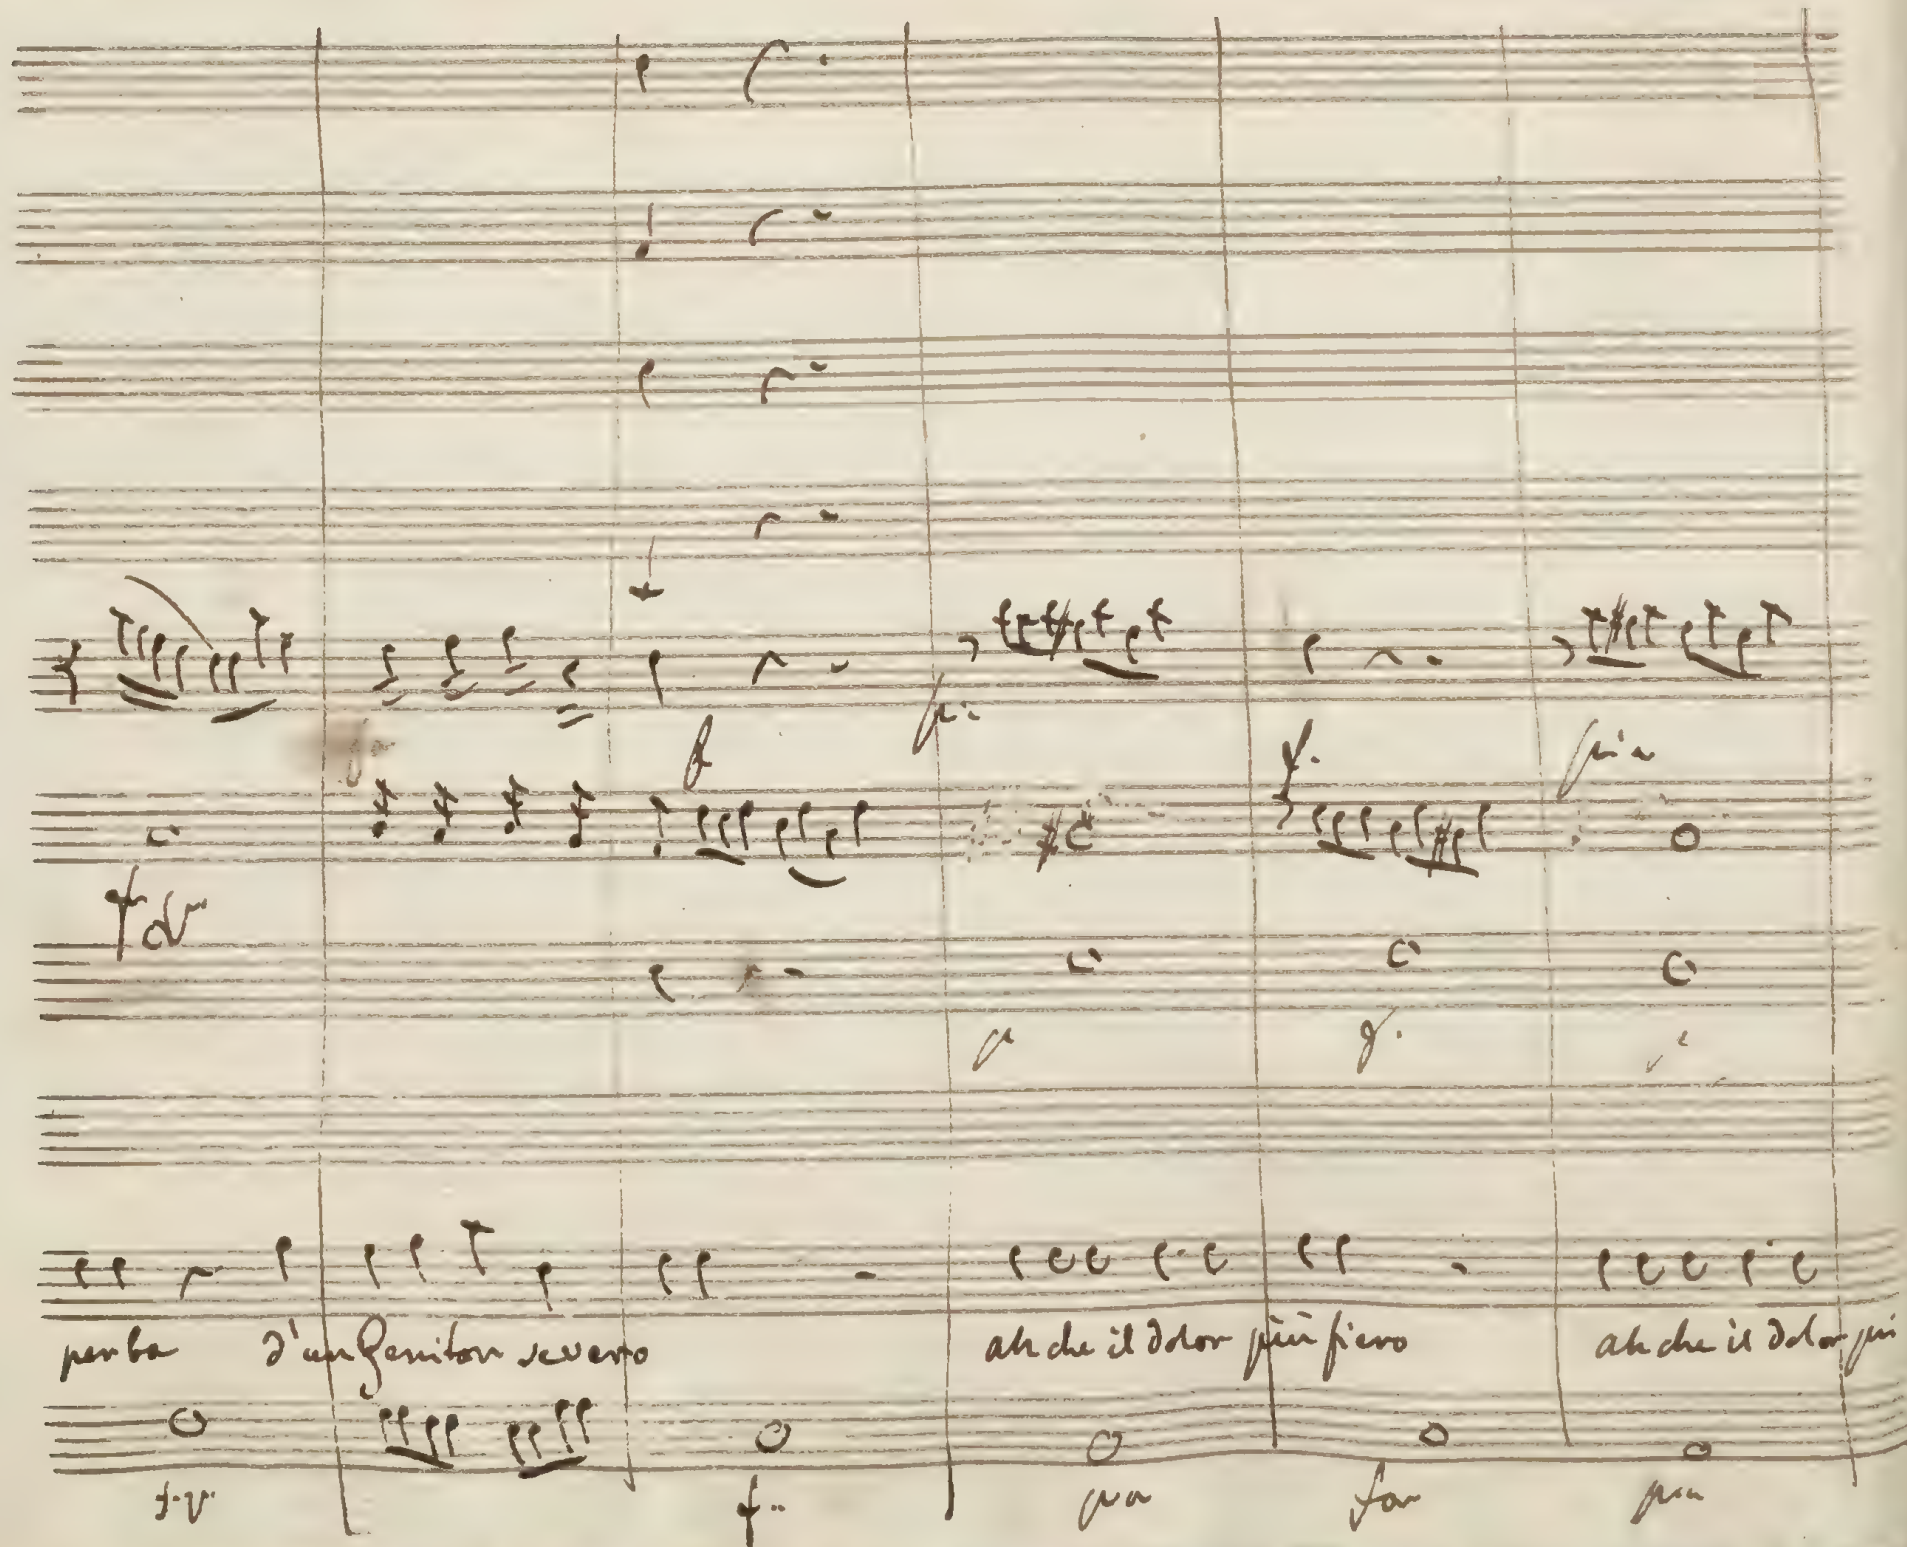 f p:
f. pia
for
p f.
perba d'un Genitor severo ah che il dolor più fiero ah che il dolor piu
f: pia for pia